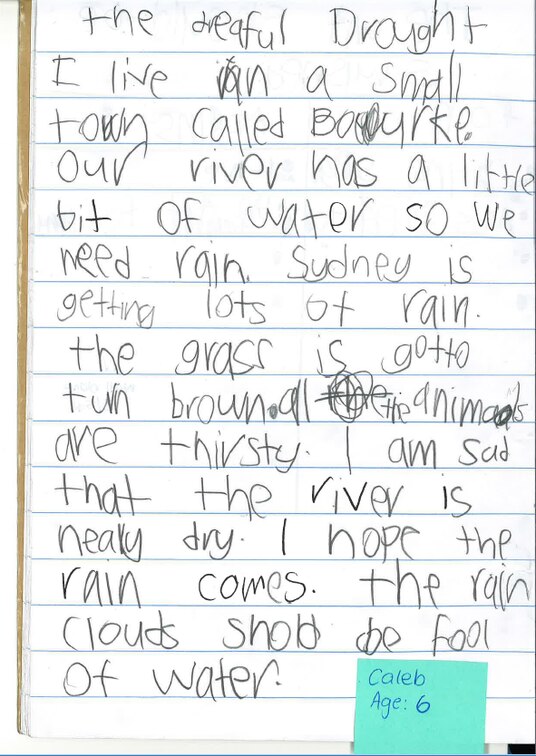 the dreaful Drought
I live in a Small
town called Bourke.
Our river has a little
bit of water so we
need rain. Sydney is
getting lots of rain.
the grass is gotto
turn brown. all the animals
are thirsty. I am sad
that the river is
nealy dry. I hope the
rain comes. the rain
clouds shold be fool
of water.
Caleb
Age: 6